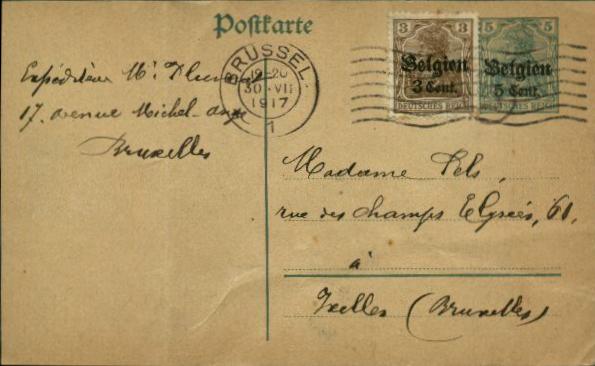 Postkarte
Expéditeur Mr
17, avenue Michel-Ange
Bruxelles
BRÜSSEL
19-20
30.VII
1917
1
3 3
Belgien
3 Cent.
DEUTSCHES REICH
5 5
Belgien
5 Cent.
DEUTSCHES REICH
Madame Pels,
rue des Champs Elysées, 61,
à
Ixelles (Bruxelles)